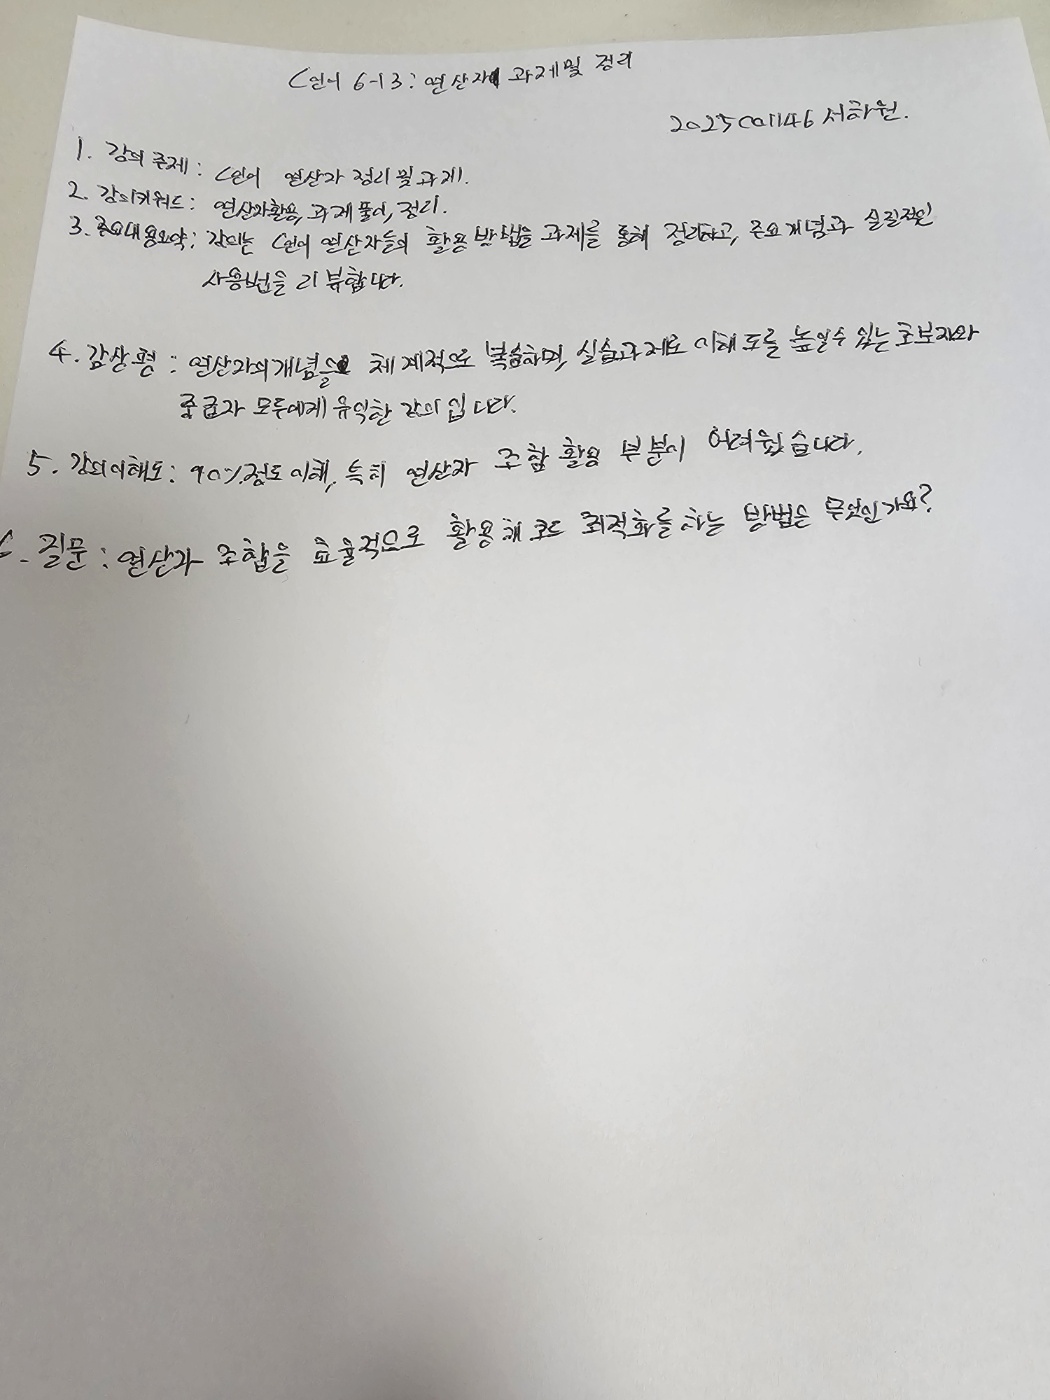 C언어 6-13: 연산자 과제 및 정리
2025001146 서하원.
1. 강의 주제: C언어 연산자 정리 및 과제.
2. 강의키워드: 연산자활용, 과제풀이, 정리.
3. 주요내용요약: 강의는 C언어 연산자들의 활용 방법을 과제를 통해 정리하고, 주요개념과 실질적인
사용법을 리뷰합니다.
4. 감상평: 연산자의개념을 체계적으로 복습하며, 실습과제로 이해도를 높일수 있는 초보자와
중급자 모두에게 유익한 강의입니다.
5. 강의이해도: 90%정도 이해, 특히 연산자 조합 활용 부분이 어려웠습니다.
6. 질문: 연산자 조합을 효율적으로 활용해 코드 최적화를 하는 방법은 무엇인가요?